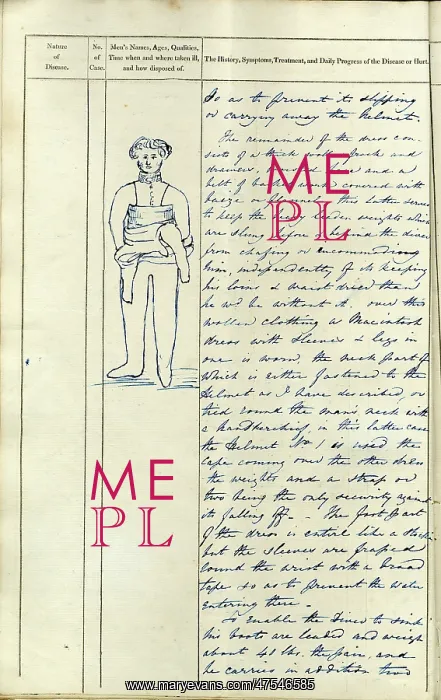 Nature
of
Disease.
No.
of
Case.
Men's Names, Ages, Qualities,
Time when and where taken ill,
and how disposed of.
The History, Symptoms, Treatment, and Daily Progress of the Disease or Hurt.
So as to prevent its slipping
or carrying away the Helmet.
The remainder of the dress con-
sists of a thick frock and
drawers, and a
belt of covered with
baize or this latter serves
to keep the heavy leaden weights which
are slung before & behind the diver
from chafing or encommodiong
him, independently of its keeping
his loins & waist drier than
he wd be without it. over this
wollen clothing a Macintosh
dress with sleeves & legs in
one is worn, the neck part of
which is either fastened to the
Helmet as I have described, or
tied round the man's neck with
a handkerchief, in this latter case
the Helmet No 1 is used the
cape coming over the other dress
the weights and a strap or
two being the only security against
its falling off. The foot part
of the dress is entire like a stock
but the sleeves are
round the wrist with a broad
tape so as to prevent the water
entering there.
To enable the Diver to sink
his boots are leaded and weigh
about 40 lbs. the pair, and
he carries in addition two
ME
PL
ME
PL
www.maryevans.com/47546585